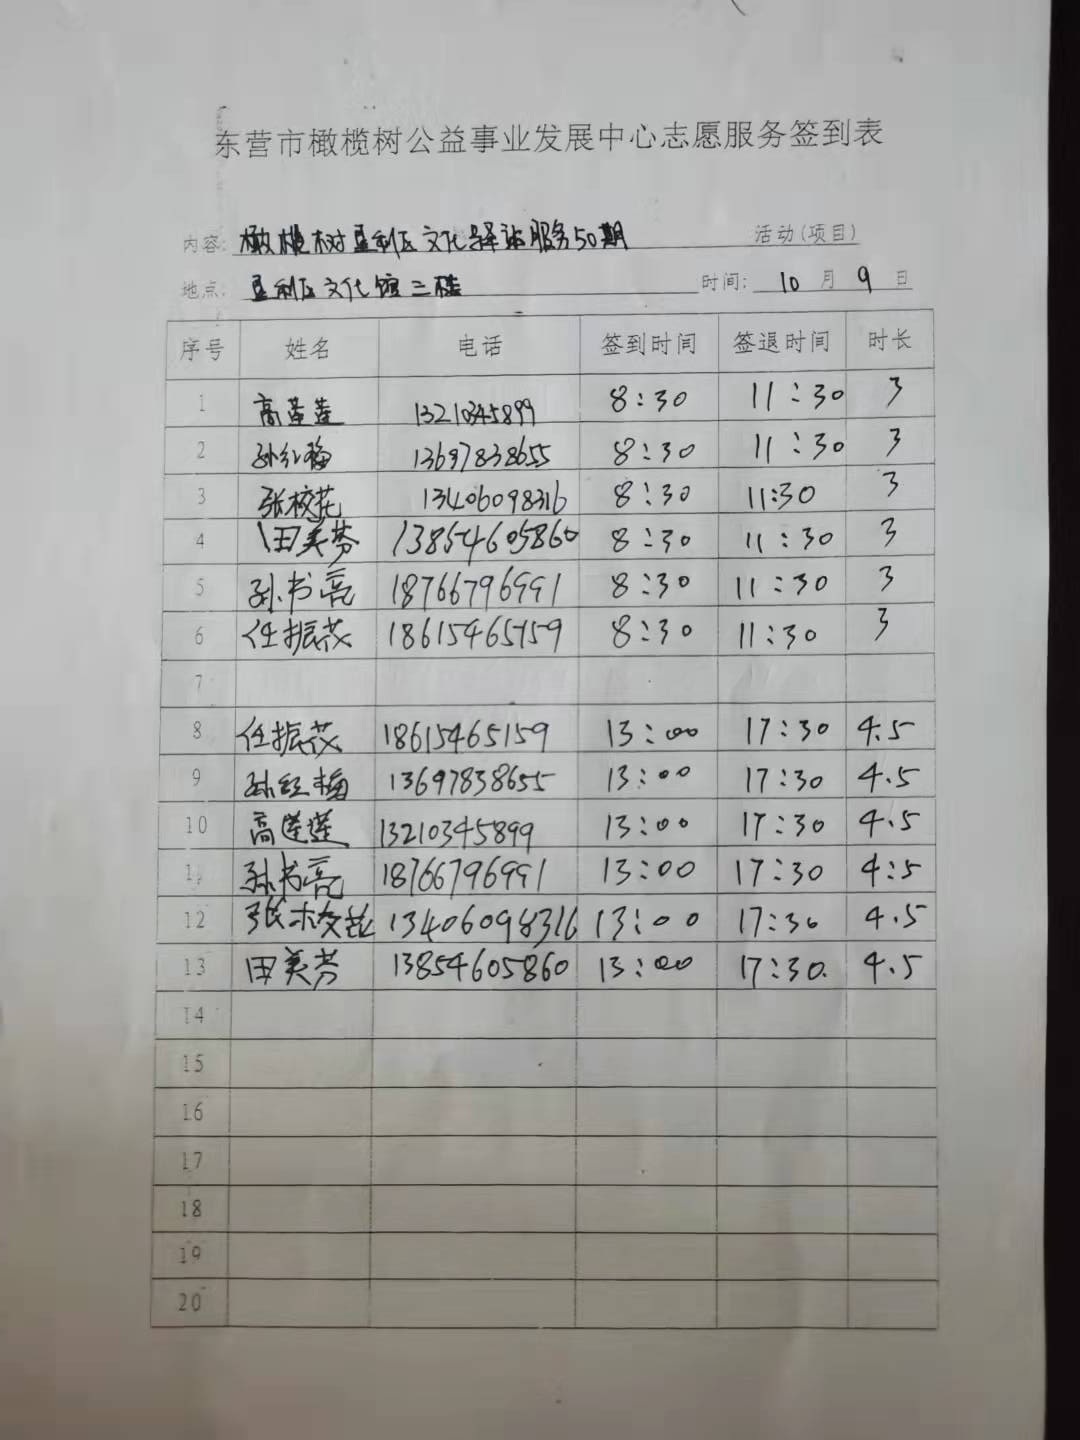 东营市橄榄树公益事业发展中心志愿服务签到表
内容: 橄榄树垦利区文化驿站服务50期 活动(项目)
地点: 垦利区文化馆二楼 时间: 10 月 9 日
序号 姓名 电话 签到时间 签退时间 时长
1 高莲莲 13210345899 8:30 11:30 3
2 孙红梅 13697838655 8:30 11:30 3
3 张校花 13406098316 8:30 11:30 3
4 田美芬 13854605860 8:30 11:30 3
5 孙书亮 18766796991 8:30 11:30 3
6 任振茂 18615465159 8:30 11:30 3
7
8 任振茂 18615465159 13:00 17:30 4.5
9 孙红梅 13697838655 13:00 17:30 4.5
10 高莲莲 13210345899 13:00 17:30 4.5
11 孙书亮 18766796991 13:00 17:30 4:5
12 张校花 13406098316 13:00 17:30 4.5
13 田美芬 13854605860 13:00 17:30. 4.5
14
15
16
17
18
19
20